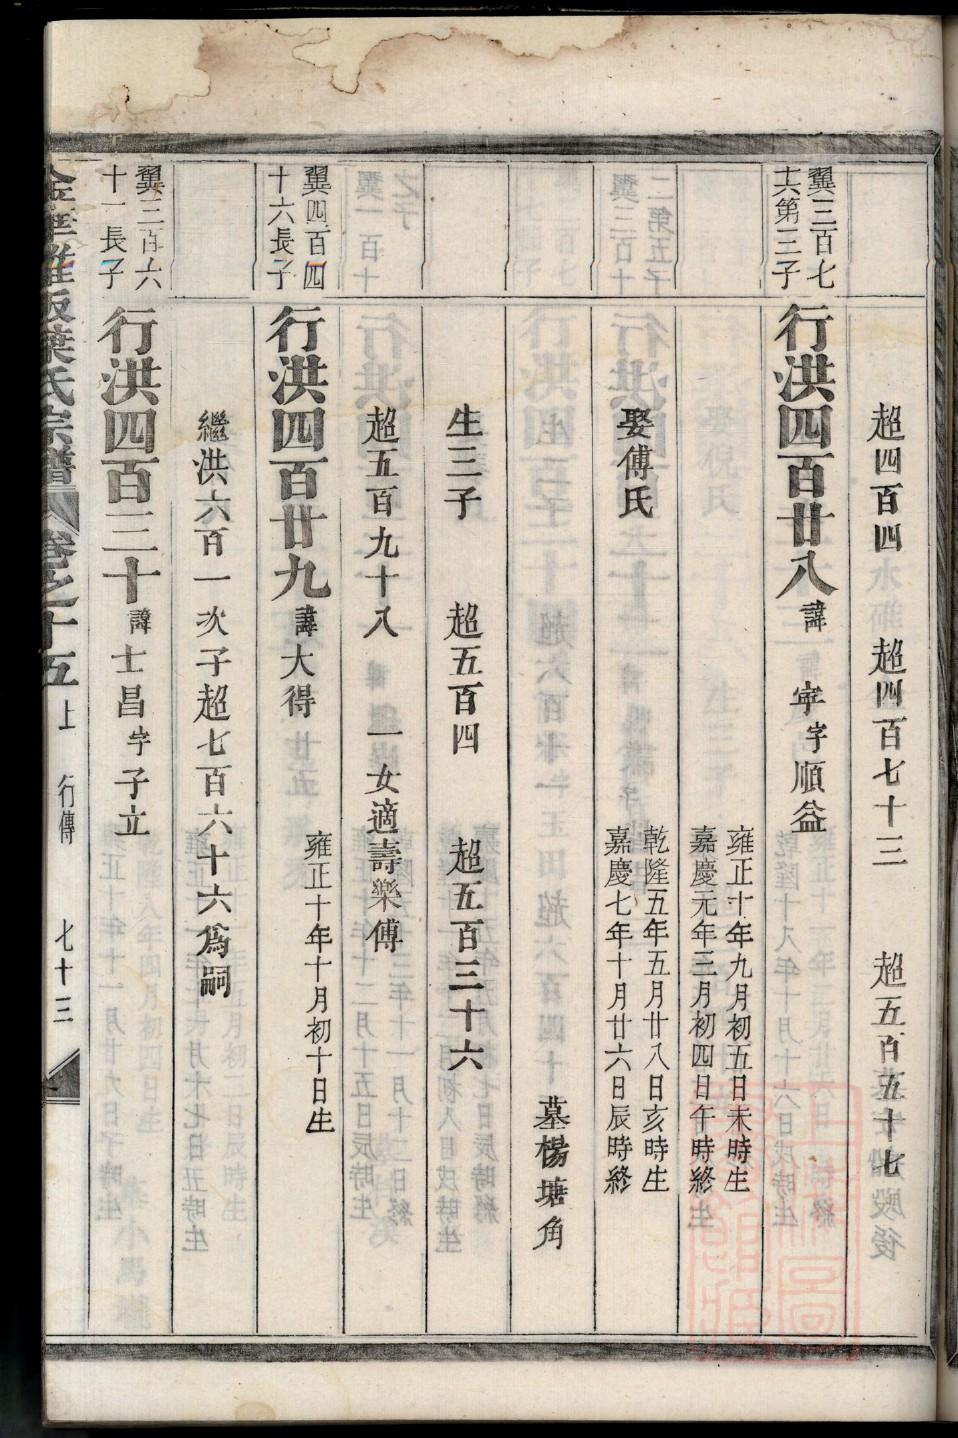 超四百四 超四百七十三 超五百五十七
翼三百七
十六第三子
行洪四百廿八諱 寕字順益
雍正十年九月初五日未時生
嘉慶元年三月初四日午時終
娶傅氏
乾隆五年五月廿八日亥時生
嘉慶七年十月廿六日辰時終
墓楊塘角
生三子 超五百四 超五百三十六
超五百九十八 一女適壽樂傅
翼四百四
十六長子
行洪四百廿九諱大得
雍正十年十月初十日生
繼洪六百一次子超七百六十六爲嗣
翼三百六
十一長子
行洪四百三十諱士昌字子立
葉氏宗譜 卷之十五 上 行傳 七十三